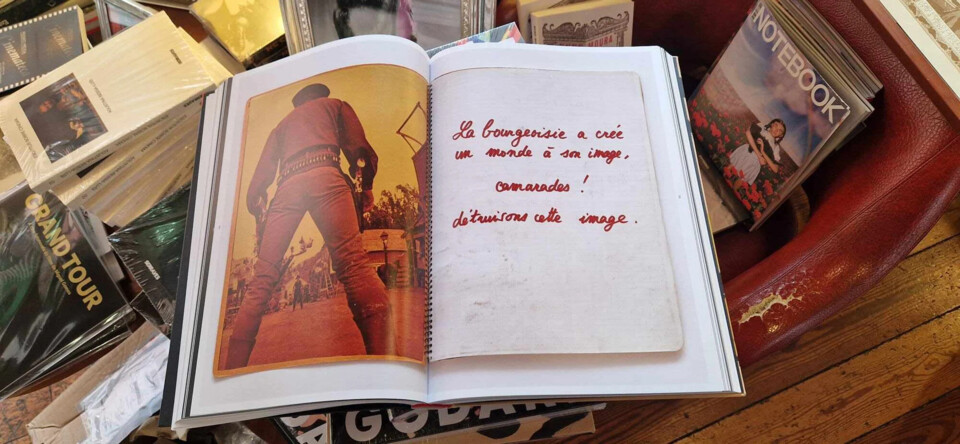 La bourgeoisie a crée
un monde à son image.
camarades !
détruisons cette image.
NOTEBOOK
GRAND TOUR